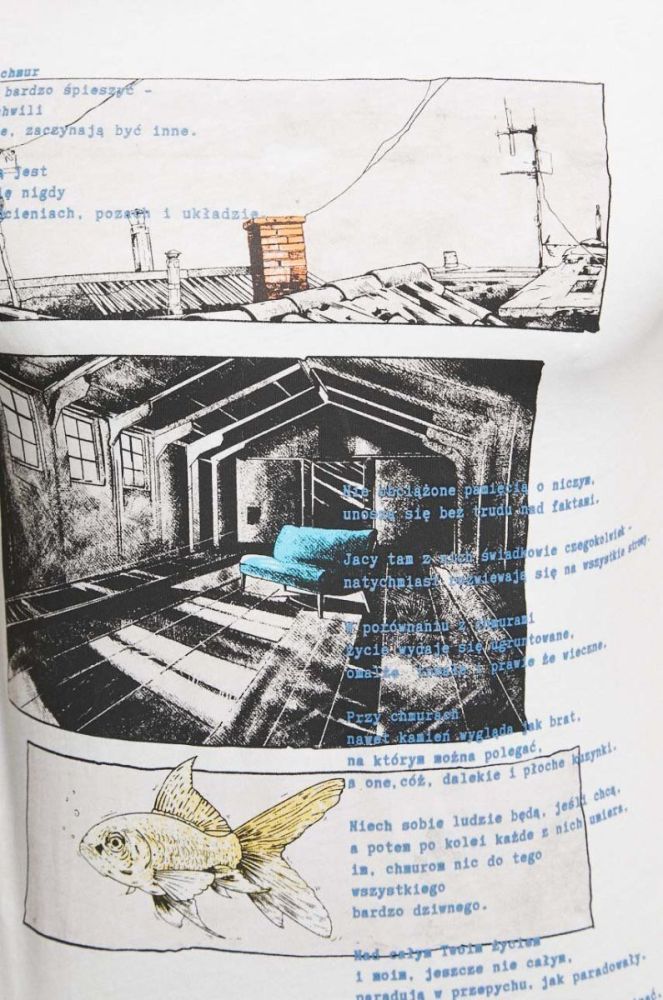 chmur
bardzo śpieszyć -
chwili
e, zaczynają być inne.
ą jest
ię nigdy
cieniach, pozach i układzie.
Nie obciążone pamięcią o niczym,
unoszą się bez trudu nad faktami.
Jacy tam z nich świadkowie czegokolwiek -
natychmiast rozwiewają się na wszystkie strony.
W porównaniu z chmurami
życie wydaje się ugruntowane,
omalże trwałe i prawie że wieczne.
Przy chmurach
nawet kamień wygląda jak brat,
na którym można polegać,
a one,cóż, dalekie i płoche kuzynki.
Niech sobie ludzie będą, jeśli chcą,
a potem po kolei każde z nich umiera,
im, chmurom nic do tego
wszystkiego
bardzo dziwnego.
Nad całym Twoim życiem
i moim, jeszcze nie całym,
paradują w przepychu, jak paradowały.